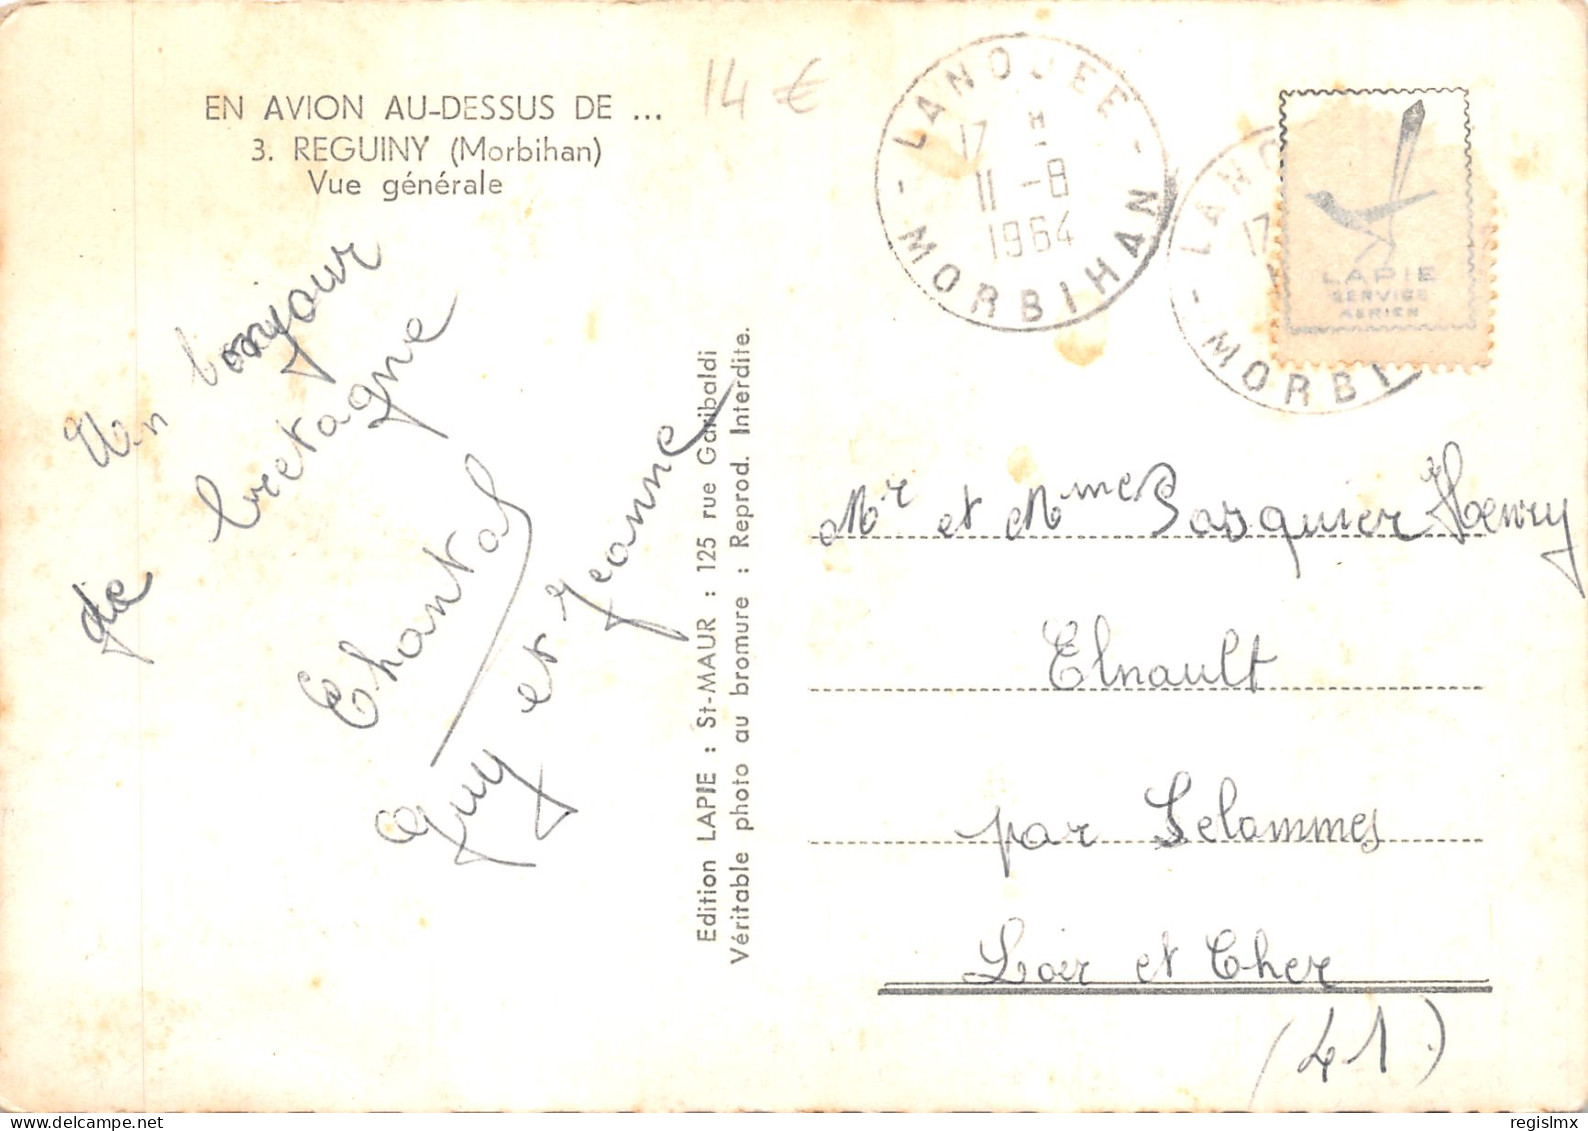 EN AVION AU-DESSUS DE ...
3. REGUINY (Morbihan)
Vue générale
14 €
- LANOUEE -
17 H
11 -8
1964
MORBIHAN
LANO
17
- MORBI
LAPIE
SERVICE
AERIEN
Un bonjour
de bretagne
Chantal
Guy et Jeanne
Edition LAPIE : St-MAUR : 125 rue Garibaldi
Véritable photo au bromure : Reprod. Interdite.
Mr et Mme Pasquier Henry
Elnault
par Selommes
Loir et Cher
(41)
regislmx